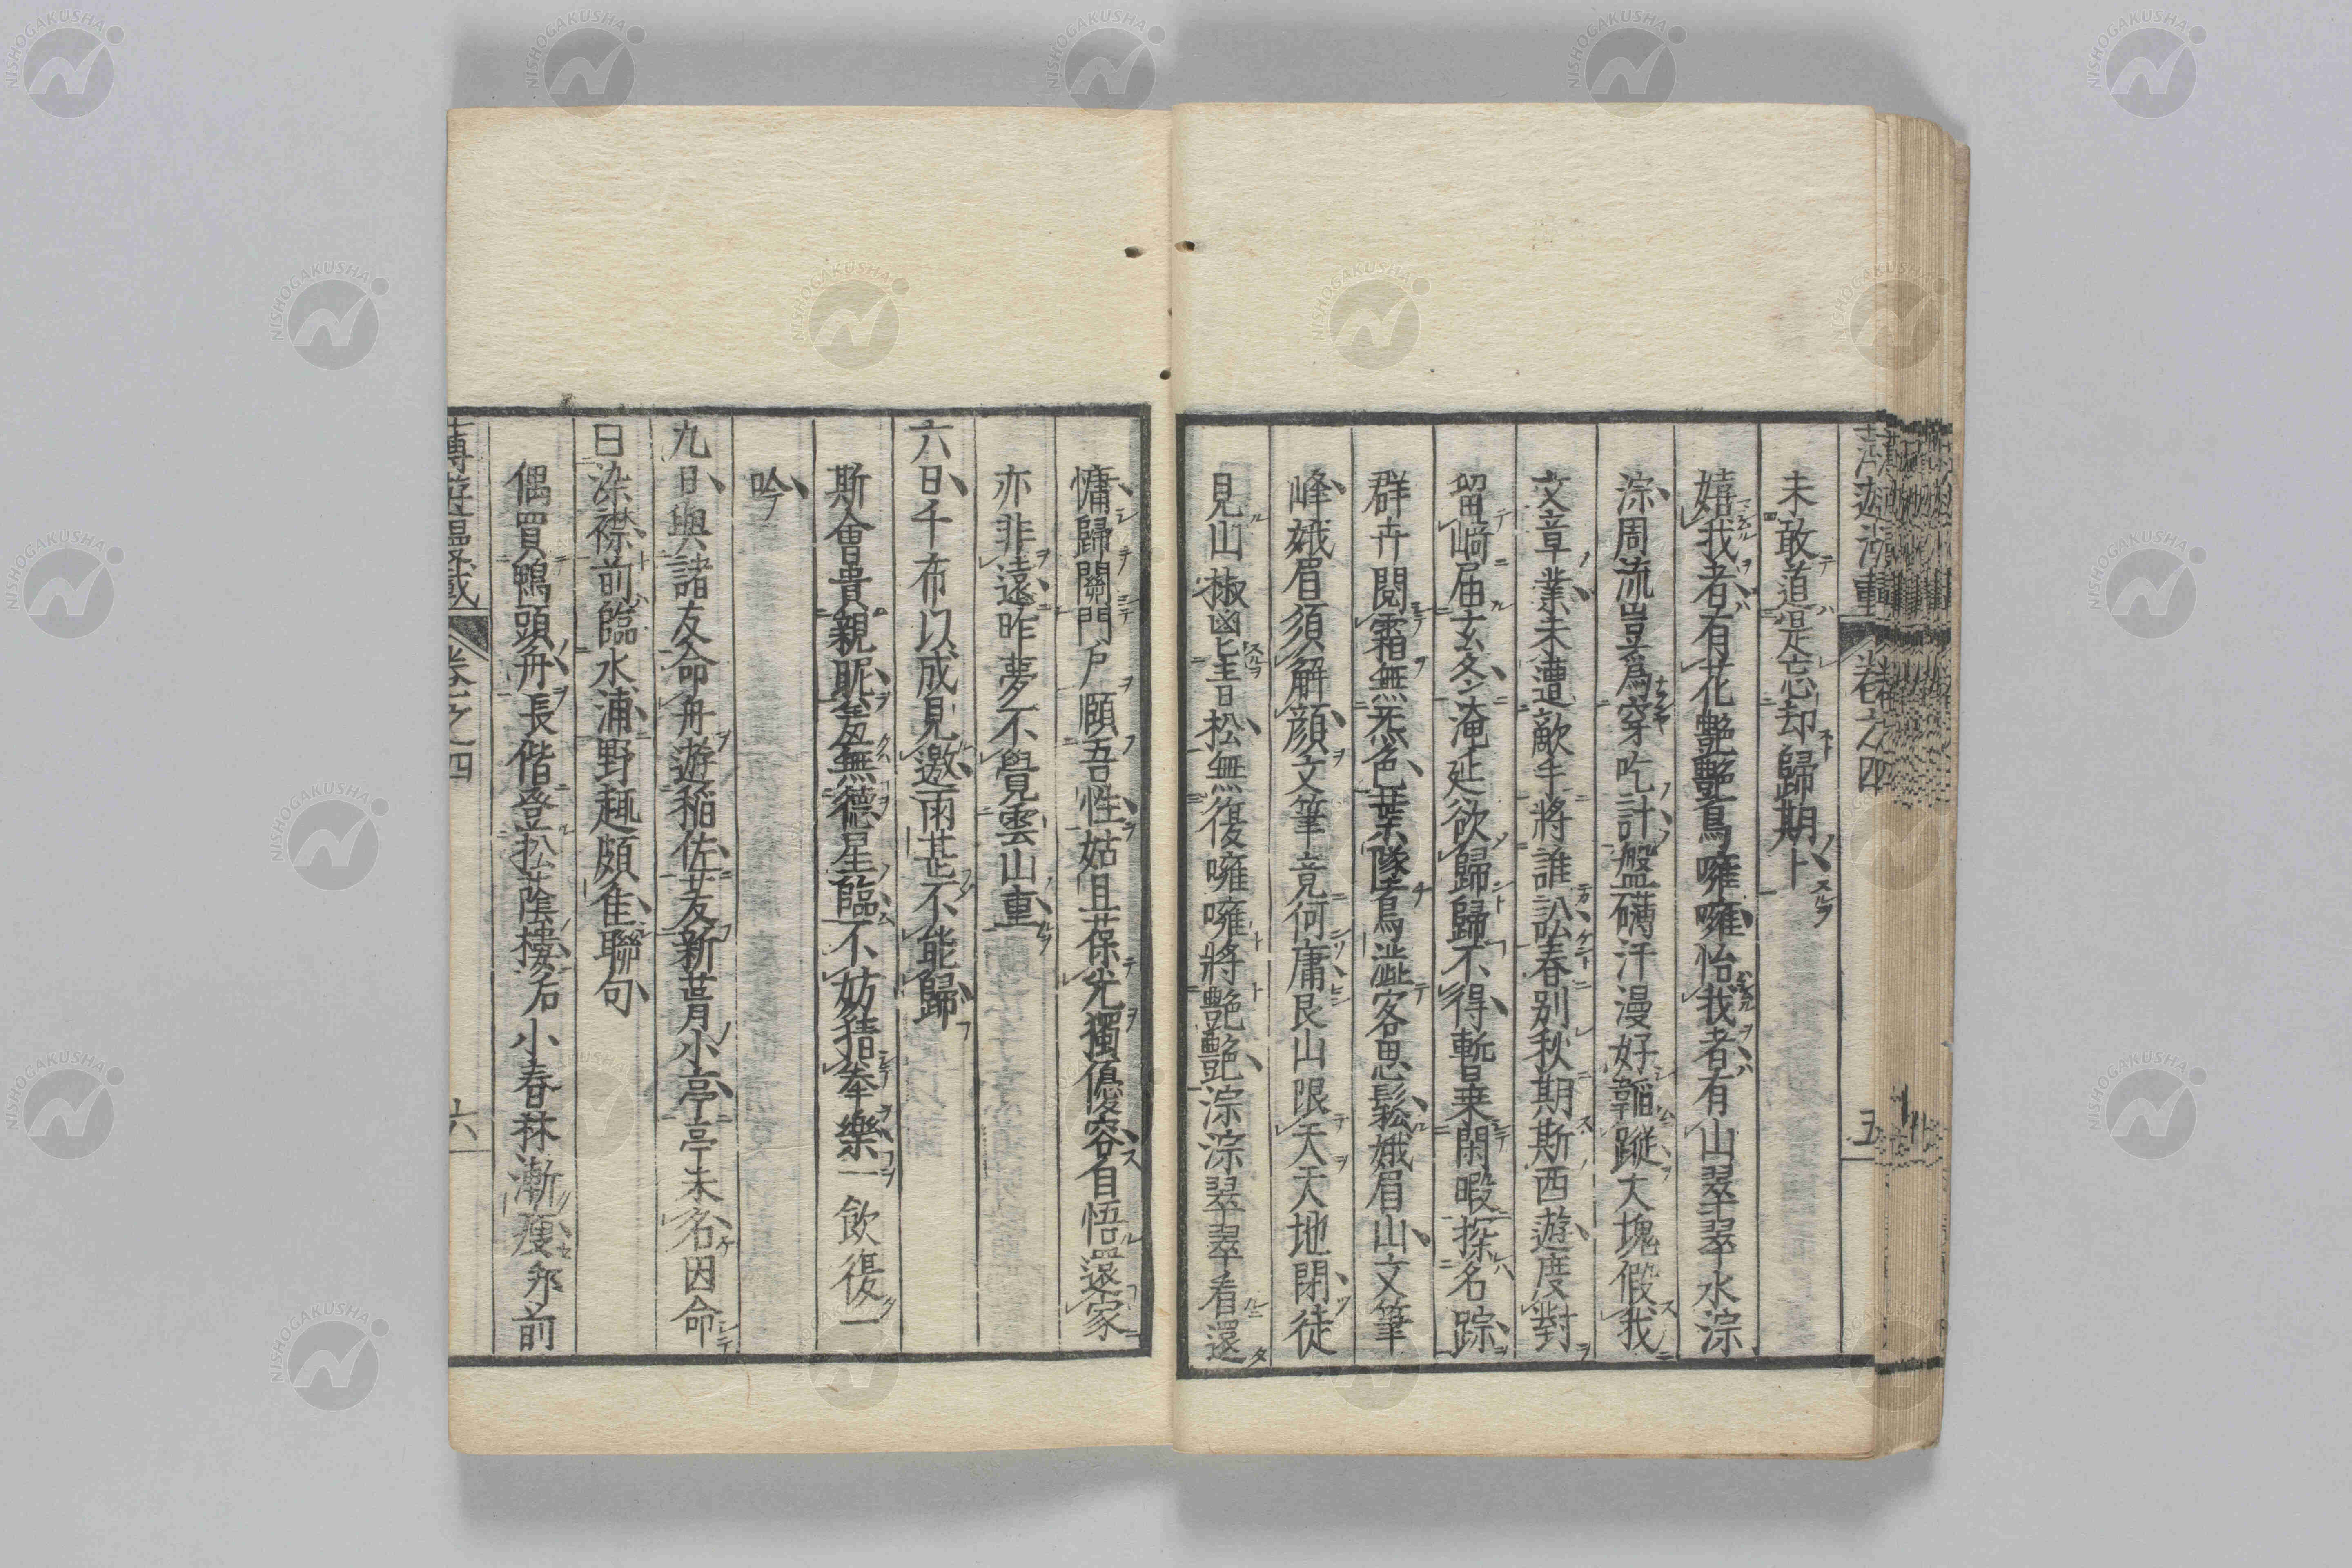 未敢道定忘却歸期卜
嬉我者有花艶艶鳥嚶嚶怡我者有山翠翠水淙
淙周流豈爲穿吃計盤礴汗漫好韜蹤大塊假我
文章業未遭敵手將誰訟春別秋期斯西遊度對
留﨑屆玄冬淹延欲歸歸不得暫乗閑暇探名踪
群卉閱霜無炁色葉隊鳥澁客思鬆娥眉山文筆
峰娥眉須解顔文筆竟何庸艮山限天天地閉徒
見山椒凶松無復嚶嚶將艶艶淙淙翠翠看還
慵歸關門戶願吾性姑且葆光獨優容自悟還家
亦非遠昨夢不覺雲山重
六日千布以成見邀雨甚不能歸
斯會貴親昵友無德星臨不妨猜拳樂一飲復一
吟
九日與諸友命舟遊稲佐芟新葺月小亭亭未名因命
曰染襟前臨水浦野趣頗佳聯句
偶買鴨頭舟長偕登菘蔭樓石小春林漸瘦邠前
卷之四
五
卷之四
六
NISHOGAKUSHA